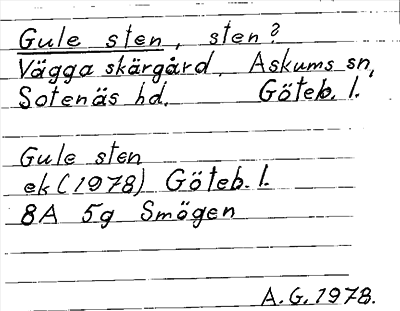 Gule sten, sten?
Vägga skärgård. Askums sn,
Sotenäs hd. Göteb. l.
Gule sten
ek (1978) Göteb. l.
8A 5g Smögen
A.G. 1978.